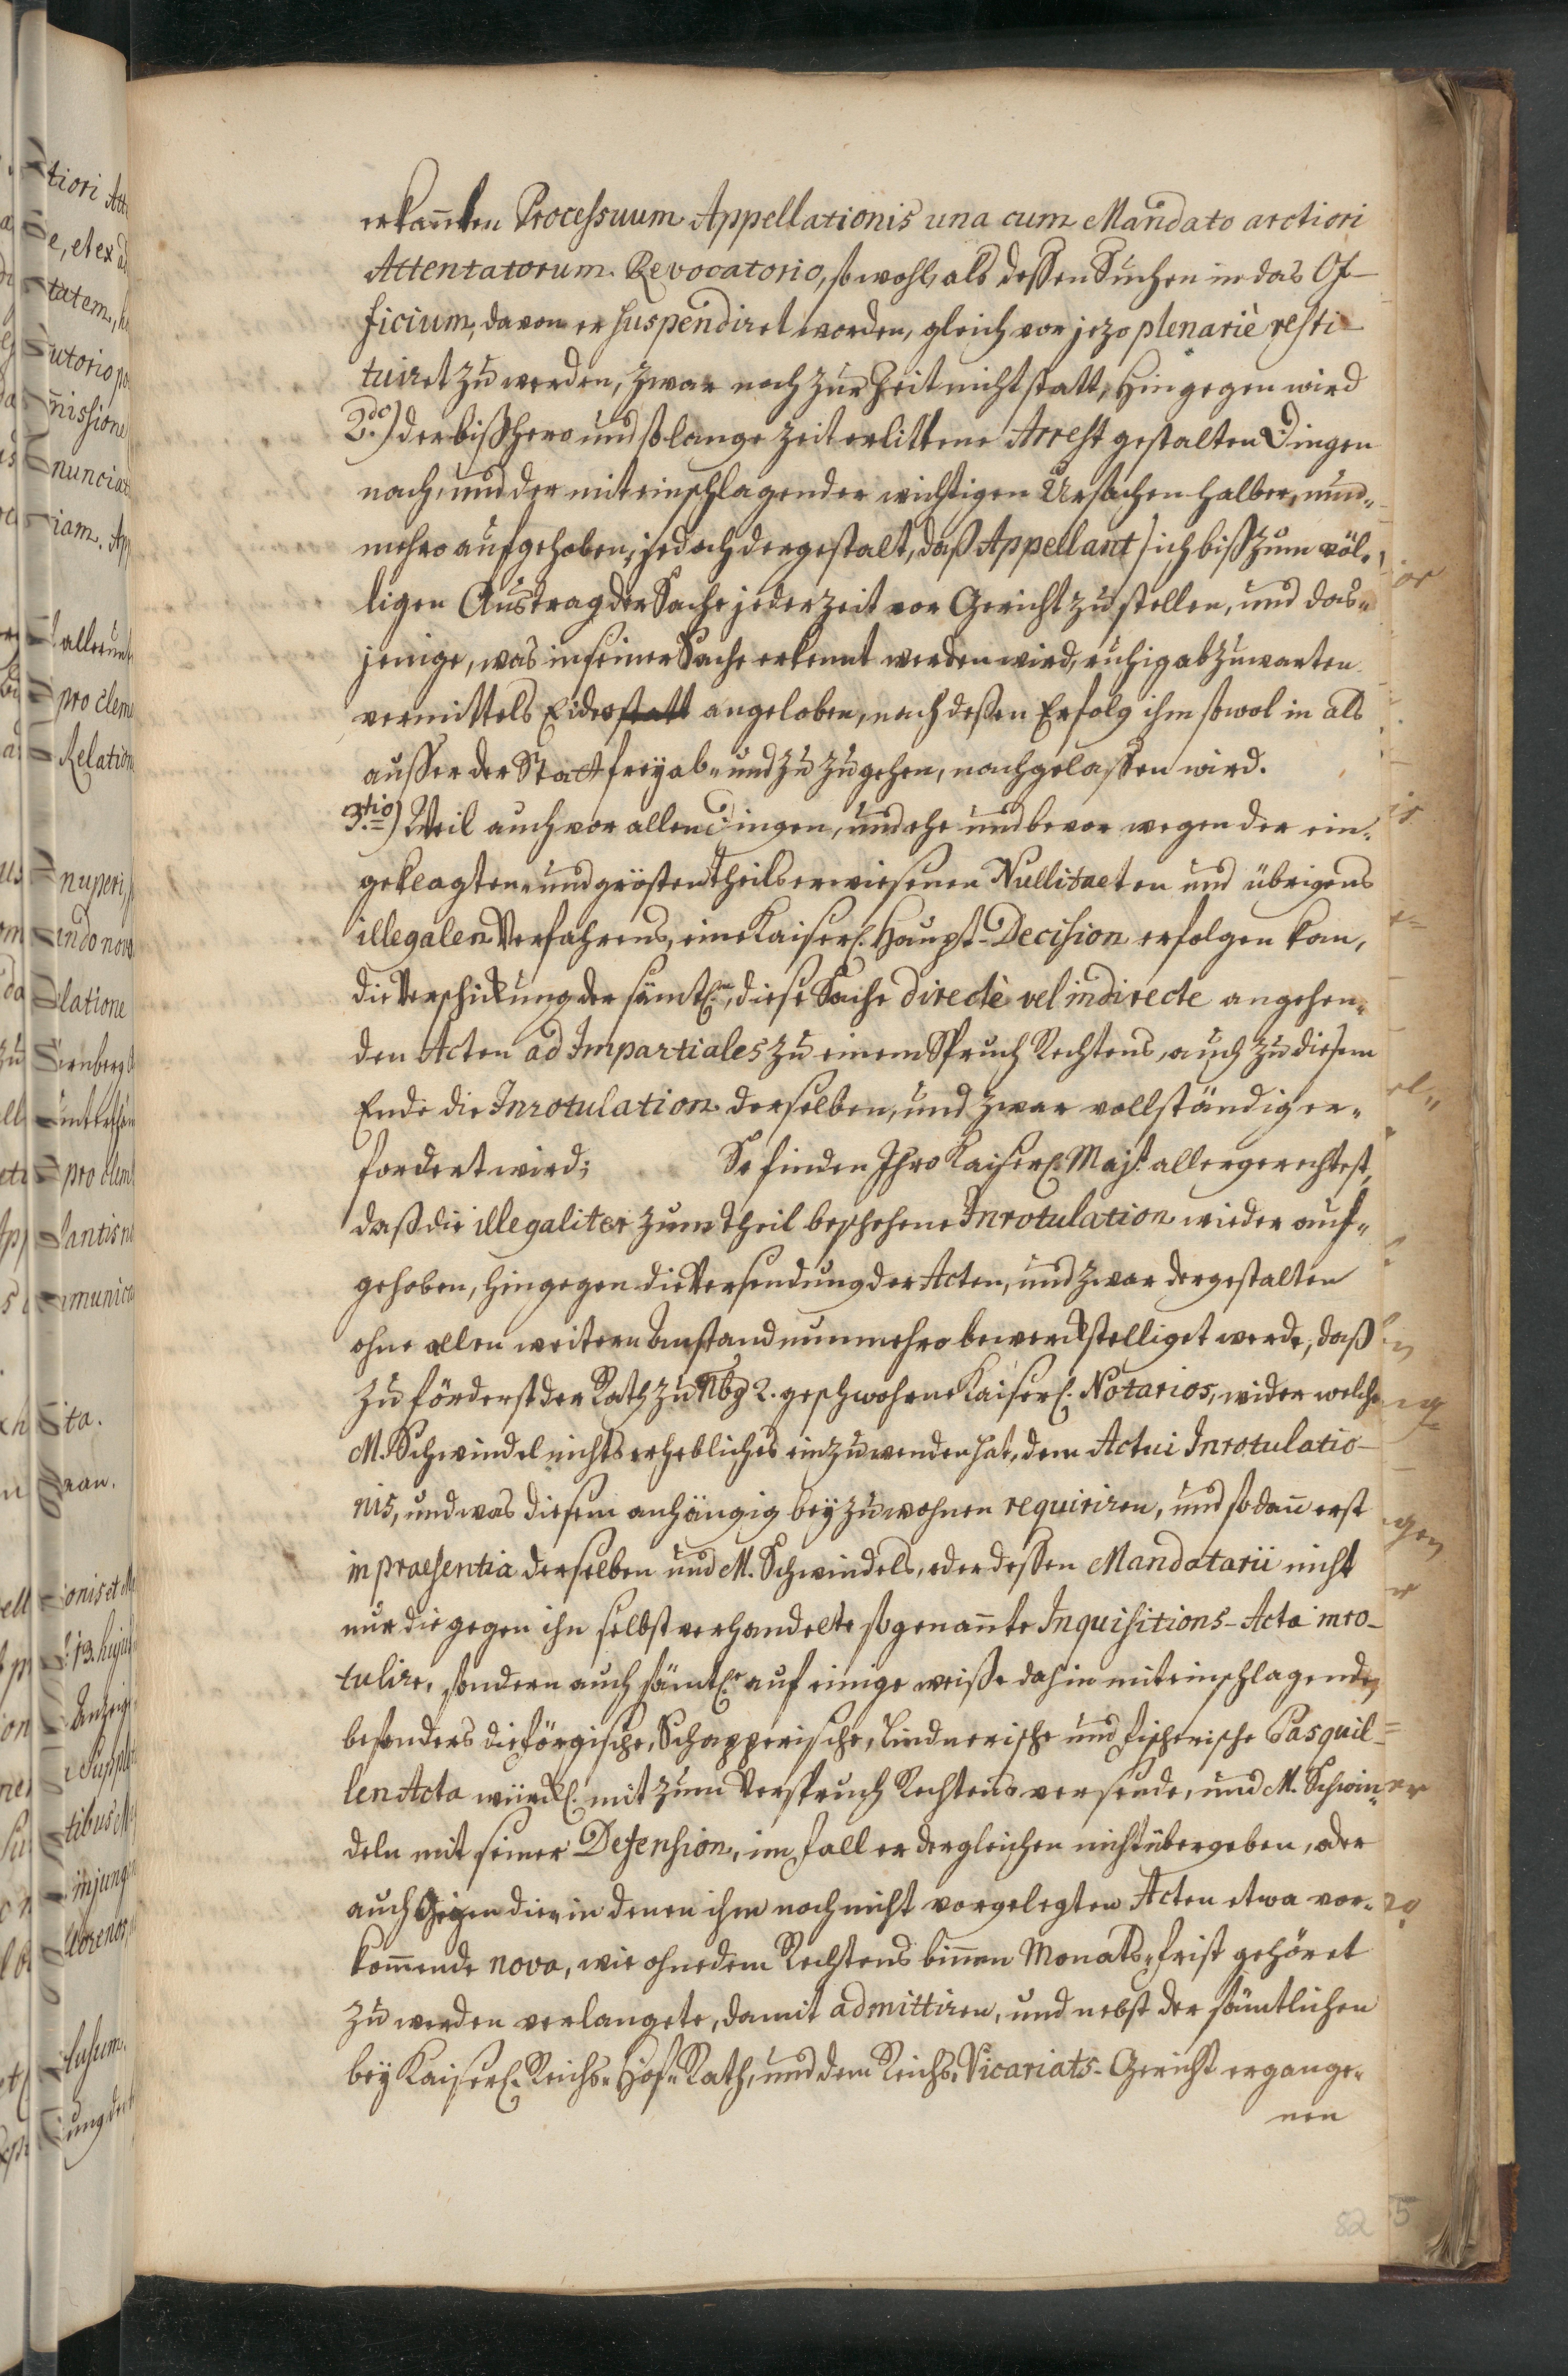 erkañten Processuum Appellationis una cum Mandato arctiori
Attentatorum Revocatorio, so wohl, als dessen Suchen in das Of-
ficium, davon er suspendiret worden, gleich vor jezo plenariè resti-
tuiret zu werden, zwar noch zur Zeit nicht statt, hingegen wird
2.do) der bißhero und so lange Zeit erlittene Arrest gestalten Dingen
nach, und der mit einschlagender wichtigen Ursachen halber, nun-
mehro aufgehoben, jedoch dergestalt, daß Appellant sich biß zum völ-
ligen Austrag der Sache jederzeit vor Gericht zu stellen, und das-
jenige, was in seiner Sache erkennt werden wird, ruhig abzuwarten
vermittels Eides statt angeloben, nach dessen Erfolg ihm sowol in als
ausser der Statt frey ab- und zu zugehen, nachgelassen wird.
3.tio) Weil auch vor allen Dingen, und ehe und bevor wegen der ein-
geklagten- und grösten Theils erwiesenen Nullitaeten und übrigens
illegalen Verfahrens, eine Kaiserl. Haupt-Decision erfolgen kan,
die Verschickung der sämtl.n, diese Sache directè vel indirecte angehen-
den Acten ad Impartiales zu einem Spruch Rechtens, auch zu diesem
Ende die Inrotulation derselben, und zwar vollständig er-
fordert wird; So finden Ihro Kaiserl. Majt. allergerechtest,
daß die illegaliter zum Theil beschehene Inrotulation wieder auf-
gehoben, hingegen die Versendung der Acten, und zwar dergestalten
ohne allen weitern Anstand nunmehro bewerckstelliget werde, daß
zu förderst der Rath zu Nbg 2. geschwohrne Kaiserl. Notarios, wider welche
M. Schwindel nichts erhebliches einzuwenden hat, dem Actui Inrotulatio-
nis, und was diesem anhängig beyzuwohnen requiriren, und sodañ erst
in praesentia derselben und M. Schwindels, oder dessen Mandatarii nicht
nur die gegen ihn selbst verhandelte sogenañte Inquisitions-Acta inro-
tulire, sondern auch sämtl.e auf einige weiße dahin mit einschlagende,
besonders die Förgische, Schapperische, Lindnerische und Fischerische Pasquil-
len Acta würckl. mit zum Verspruch Rechtens versende, und M. Schwin-
deln mit seiner Defension, im Fall er dergleichen nicht übergeben, oder
auch gegen die, in denen ihm noch nicht vorgelegten Acten etwa vor-
kom̄ende nova, wie ohnedem Rechtens binnen Monats-Frist gehöret
zu werden verlangete, damit admittiren, und nebst der sämtlichen
bey Kaiserl. Reichs-Hof-Rath, und dem Reichs-Vicariats-Gericht ergange-
nen
82
5